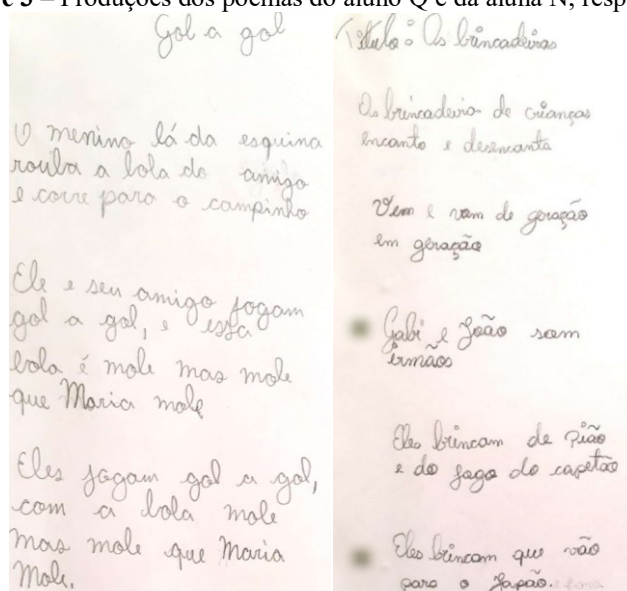 e 3 – Produções dos poemas do aluno Q e da aluna N, resp
Gol a gol
O menino lá da esquina
rouba a bola do amigo
e corre para o campinho
Ele e seu amigo jogam
gol a gol, e essa
bola é mole mas mole
que Maria mole
Eles jogam gol a gol,
com a bola mole
mas mole que Maria
Mole.
Título: As brincadeiras
As brincadeira de crianças
encanta e desencanta
Vem e vam de geração
em geração
Gabi e João sam
irmãos
Eles brincam de Pião
e do jogo do capetão
Eles brincam que vão
para o Japão.